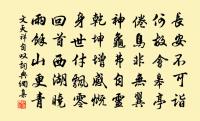 長安不可詣
何故會皋亭
倦鳥非無翼
神龜弗自靈
乾坤增感慨
身世付飄零
回首西湖曉
雨餘山更青
文天祥自叹詞典網集